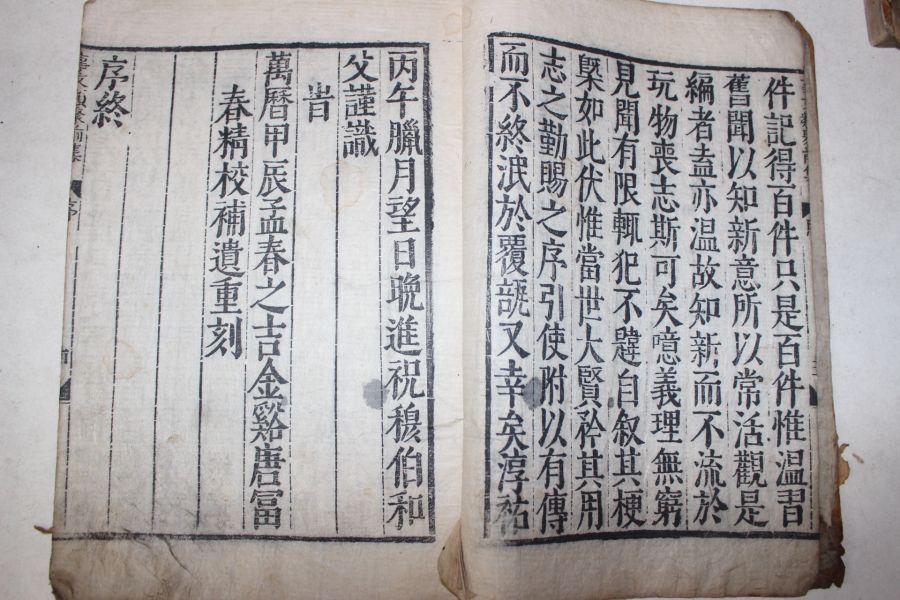 件記得百件只是百件惟溫習
舊聞以知新意所以常活觀是
編者盍亦溫故知新而不流於
玩物喪志斯可矣噫義理無窮
見聞有限輒犯不韙自叙其梗
槩如此伏惟當世大賢矜其用
志之勤賜之序引使附以有傳
而不終泯於覆瓿又幸矣淳祐
丙午臘月望日晚進祝穆伯和
父謹識
旹
萬曆甲辰孟春之吉金谿唐富
春精校補遺重刻
序終